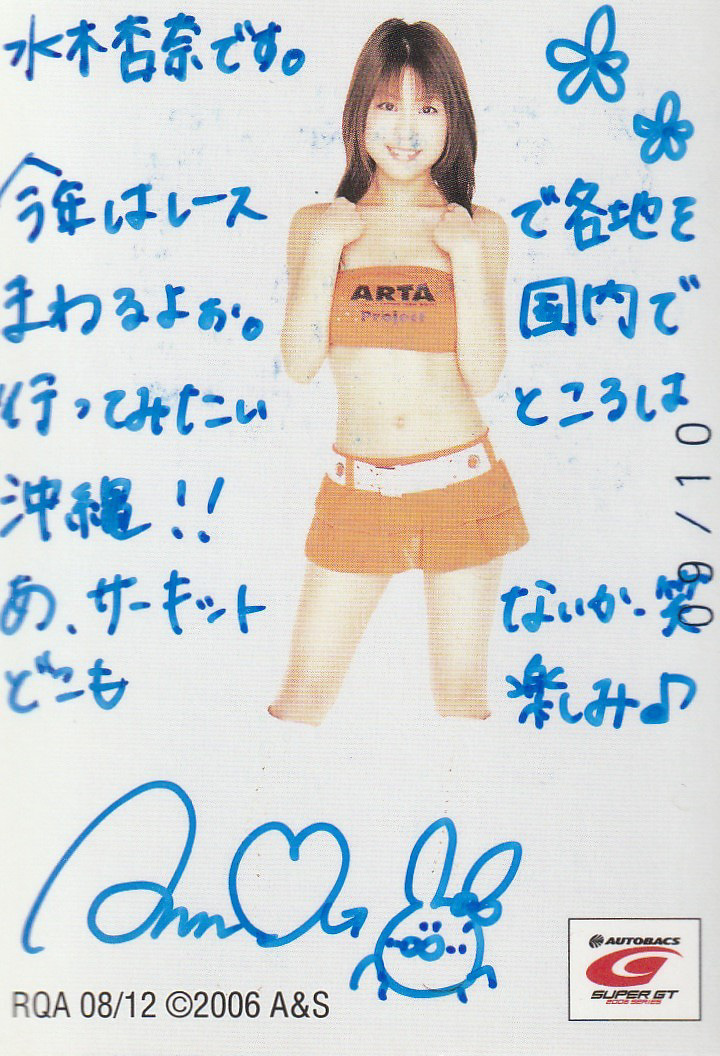 水木杏奈です。
今年はレースで各地を
まわるよぉ。国内で
行ってみたいところは
沖縄!!
あ、サーキットないか-笑
どこも楽しみ♪
ARTA
Project
09/10
Anna
RQA 08/12 ©2006 A&S
AUTOBACS
SUPER GT
2006 SERIES